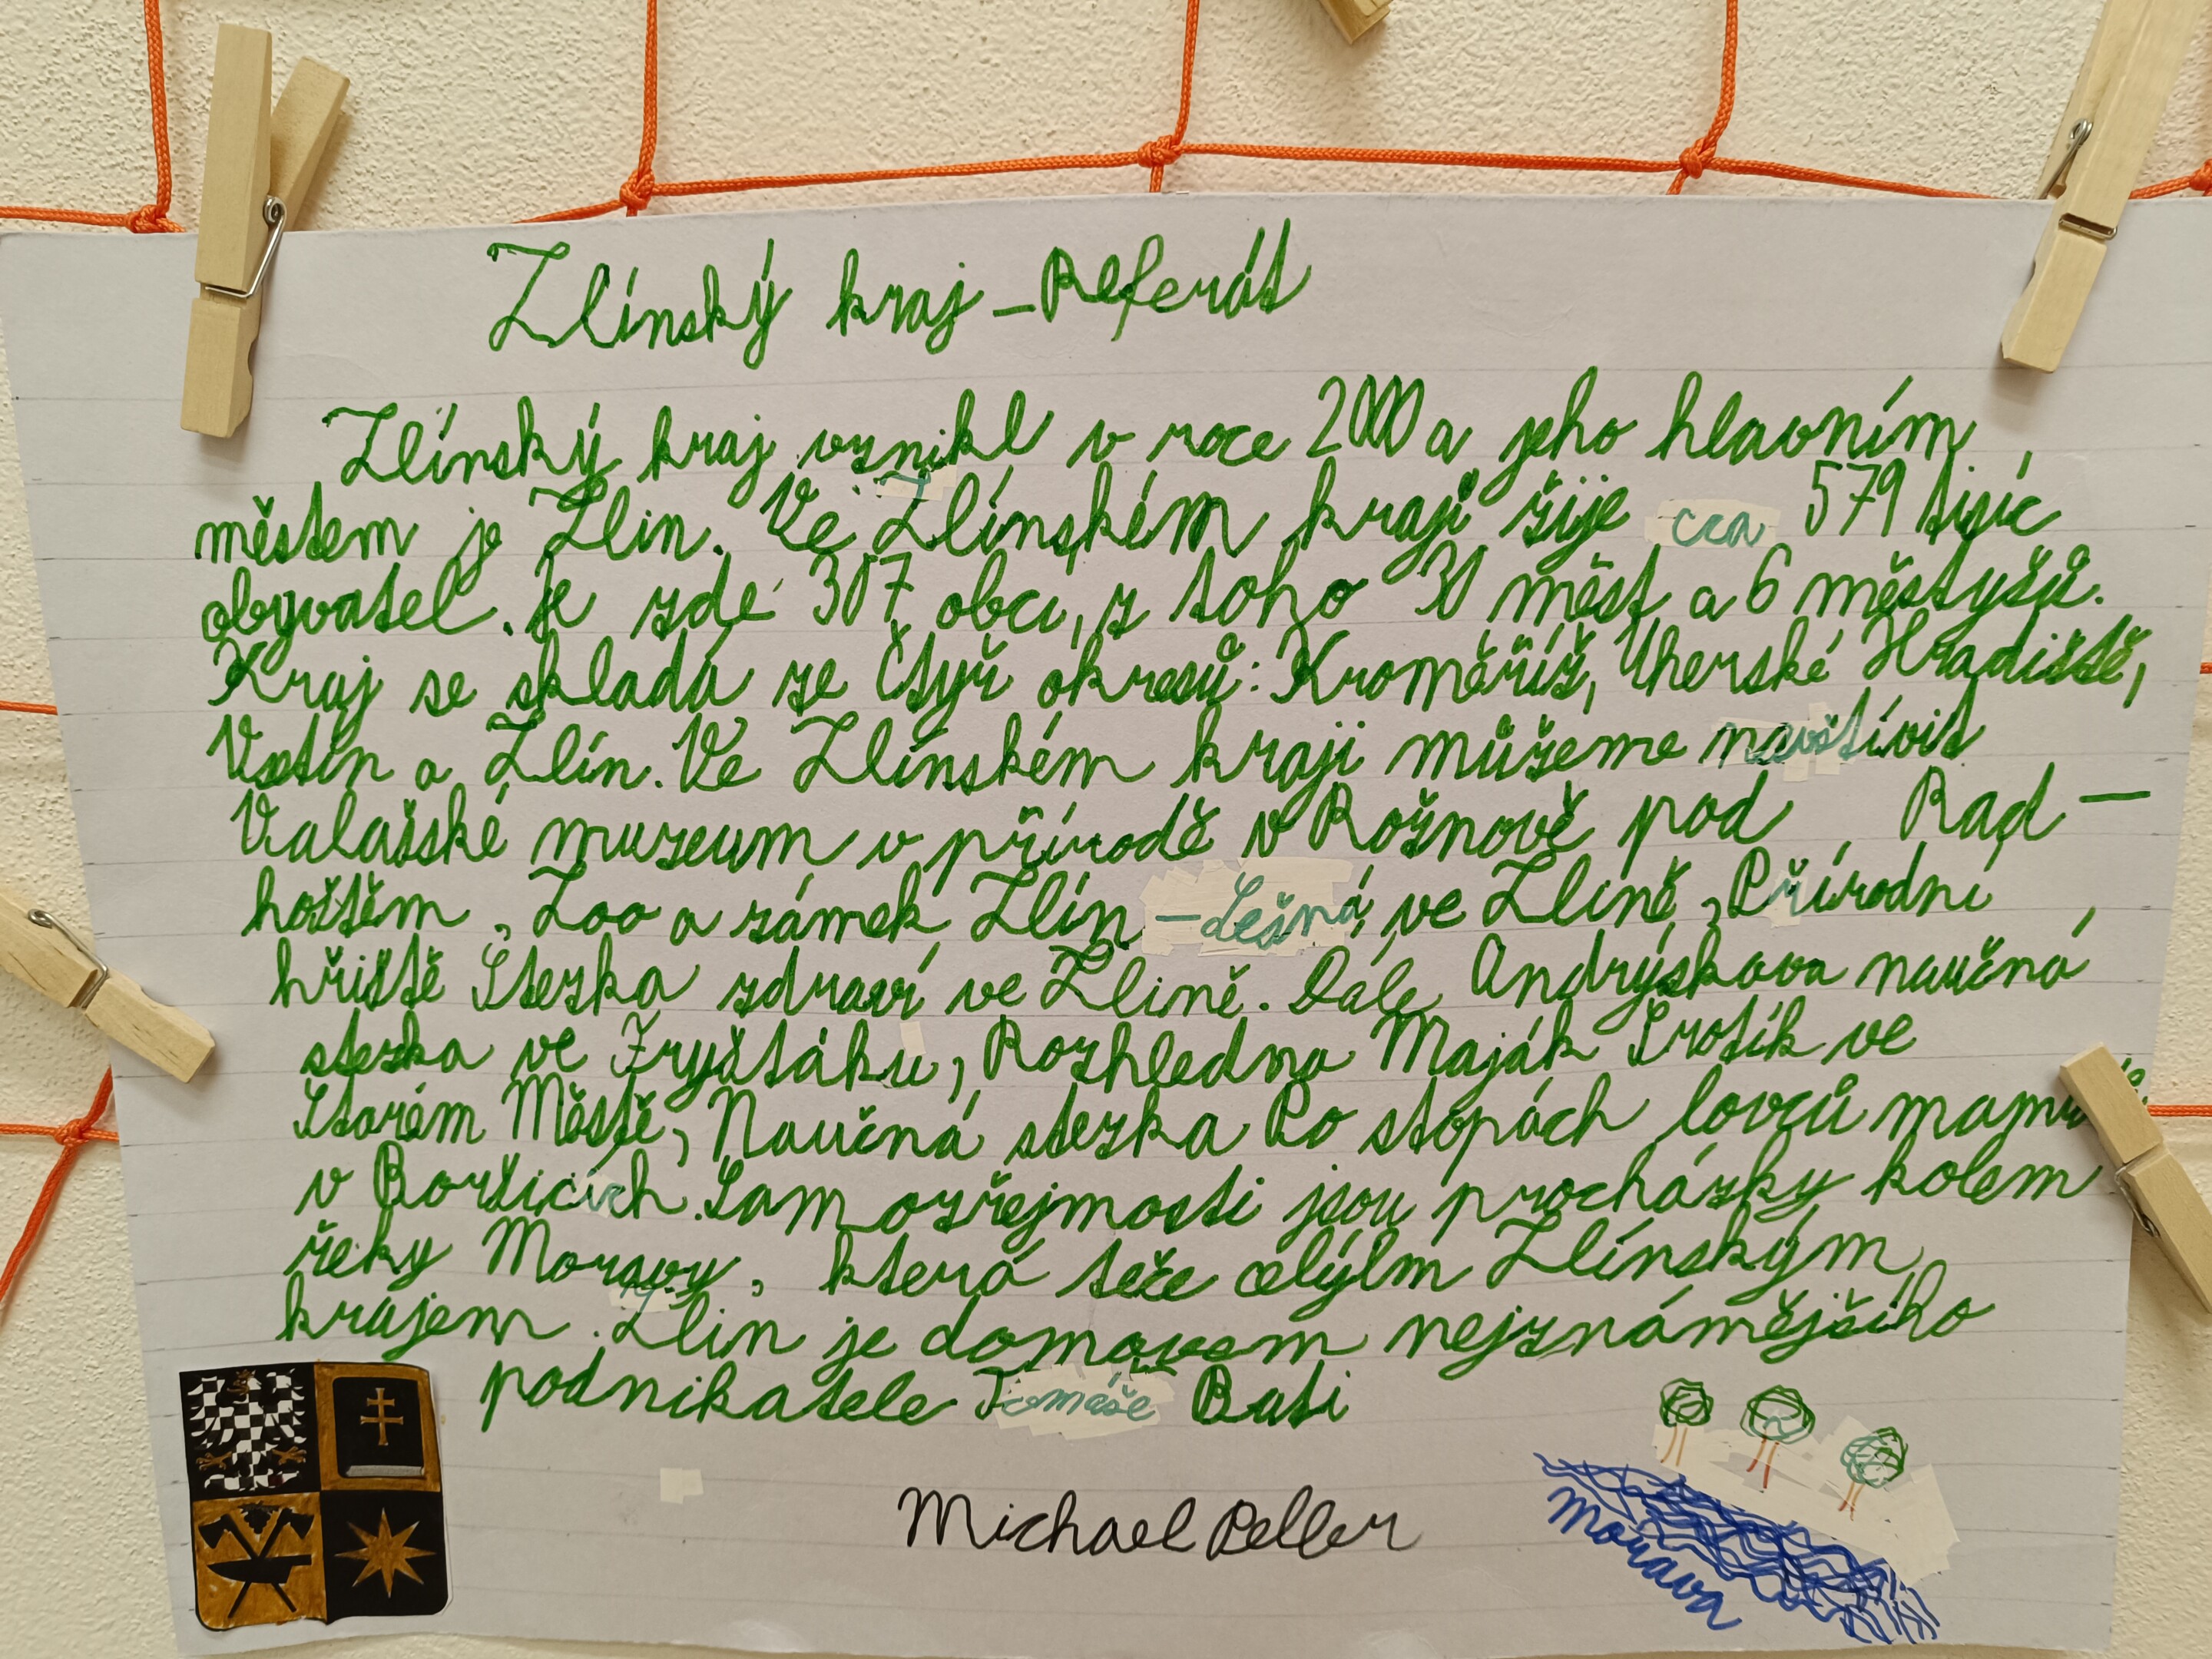 Zlínský kraj - Referát
Zlínský kraj vznikl v roce 2000 a jeho hlavním
městem je Zlín. Ve Zlínském kraji žije cca 579 tisíc
obyvatel. Je zde 307 obcí, z toho 30 měst a 6 městyšů.
Kraj se skládá ze čtyř okresů: Kroměříž, Uherské Hradiště,
Vsetín a Zlín. Ve Zlínském kraji můžeme navštívit
Valašské muzeum v přírodě v Rožnově pod Rad-
hoštěm, Zoo a zámek Zlín - Lešná, ve Zlíně, Přírodní
hřiště Stezka zdraví ve Zlíně. Dále Andrýskova naučná
stezka ve Fryštáku, Rozhledna Maják Šrotík ve
Starém Městě, Naučná stezka Po stopách lovců
v Boršicích. Samozřejmostí jsou procházky kolem
řeky Moravy, která teče celým Zlínským
krajem. Zlín je domovem nejznámějšího
podnikatele Tomáše Bati
Michael Peller
Morava